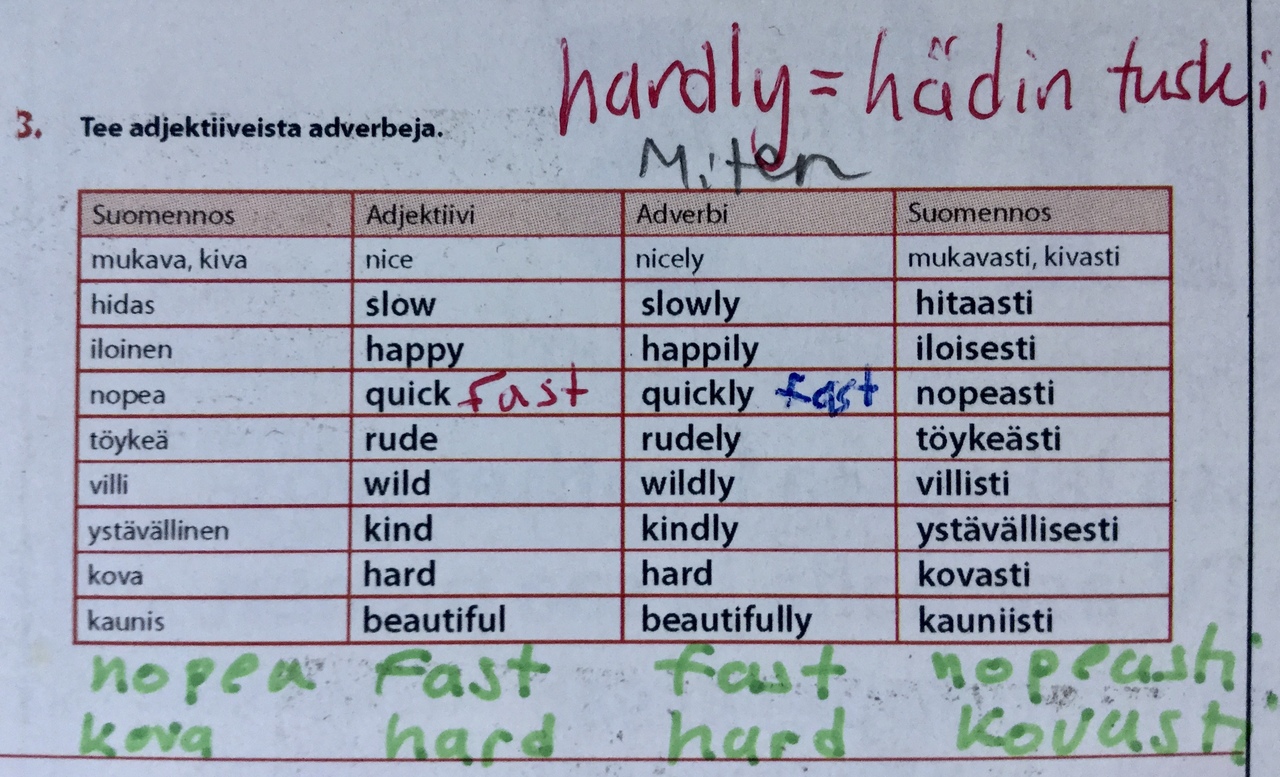 hardly = hädin tuski
3. Tee adjektiiveista adverbeja.
Miten
Suomennos Adjektiivi Adverbi Suomennos
mukava, kiva nice nicely mukavasti, kivasti
hidas slow slowly hitaasti
iloinen happy happily iloisesti
nopea quick fast quickly fast nopeasti
töykeä rude rudely töykeästi
villi wild wildly villisti
ystävällinen kind kindly ystävällisesti
kova hard hard kovasti
kaunis beautiful beautifully kauniisti
nopea fast fast nopeasti
kova hard hard kovasti